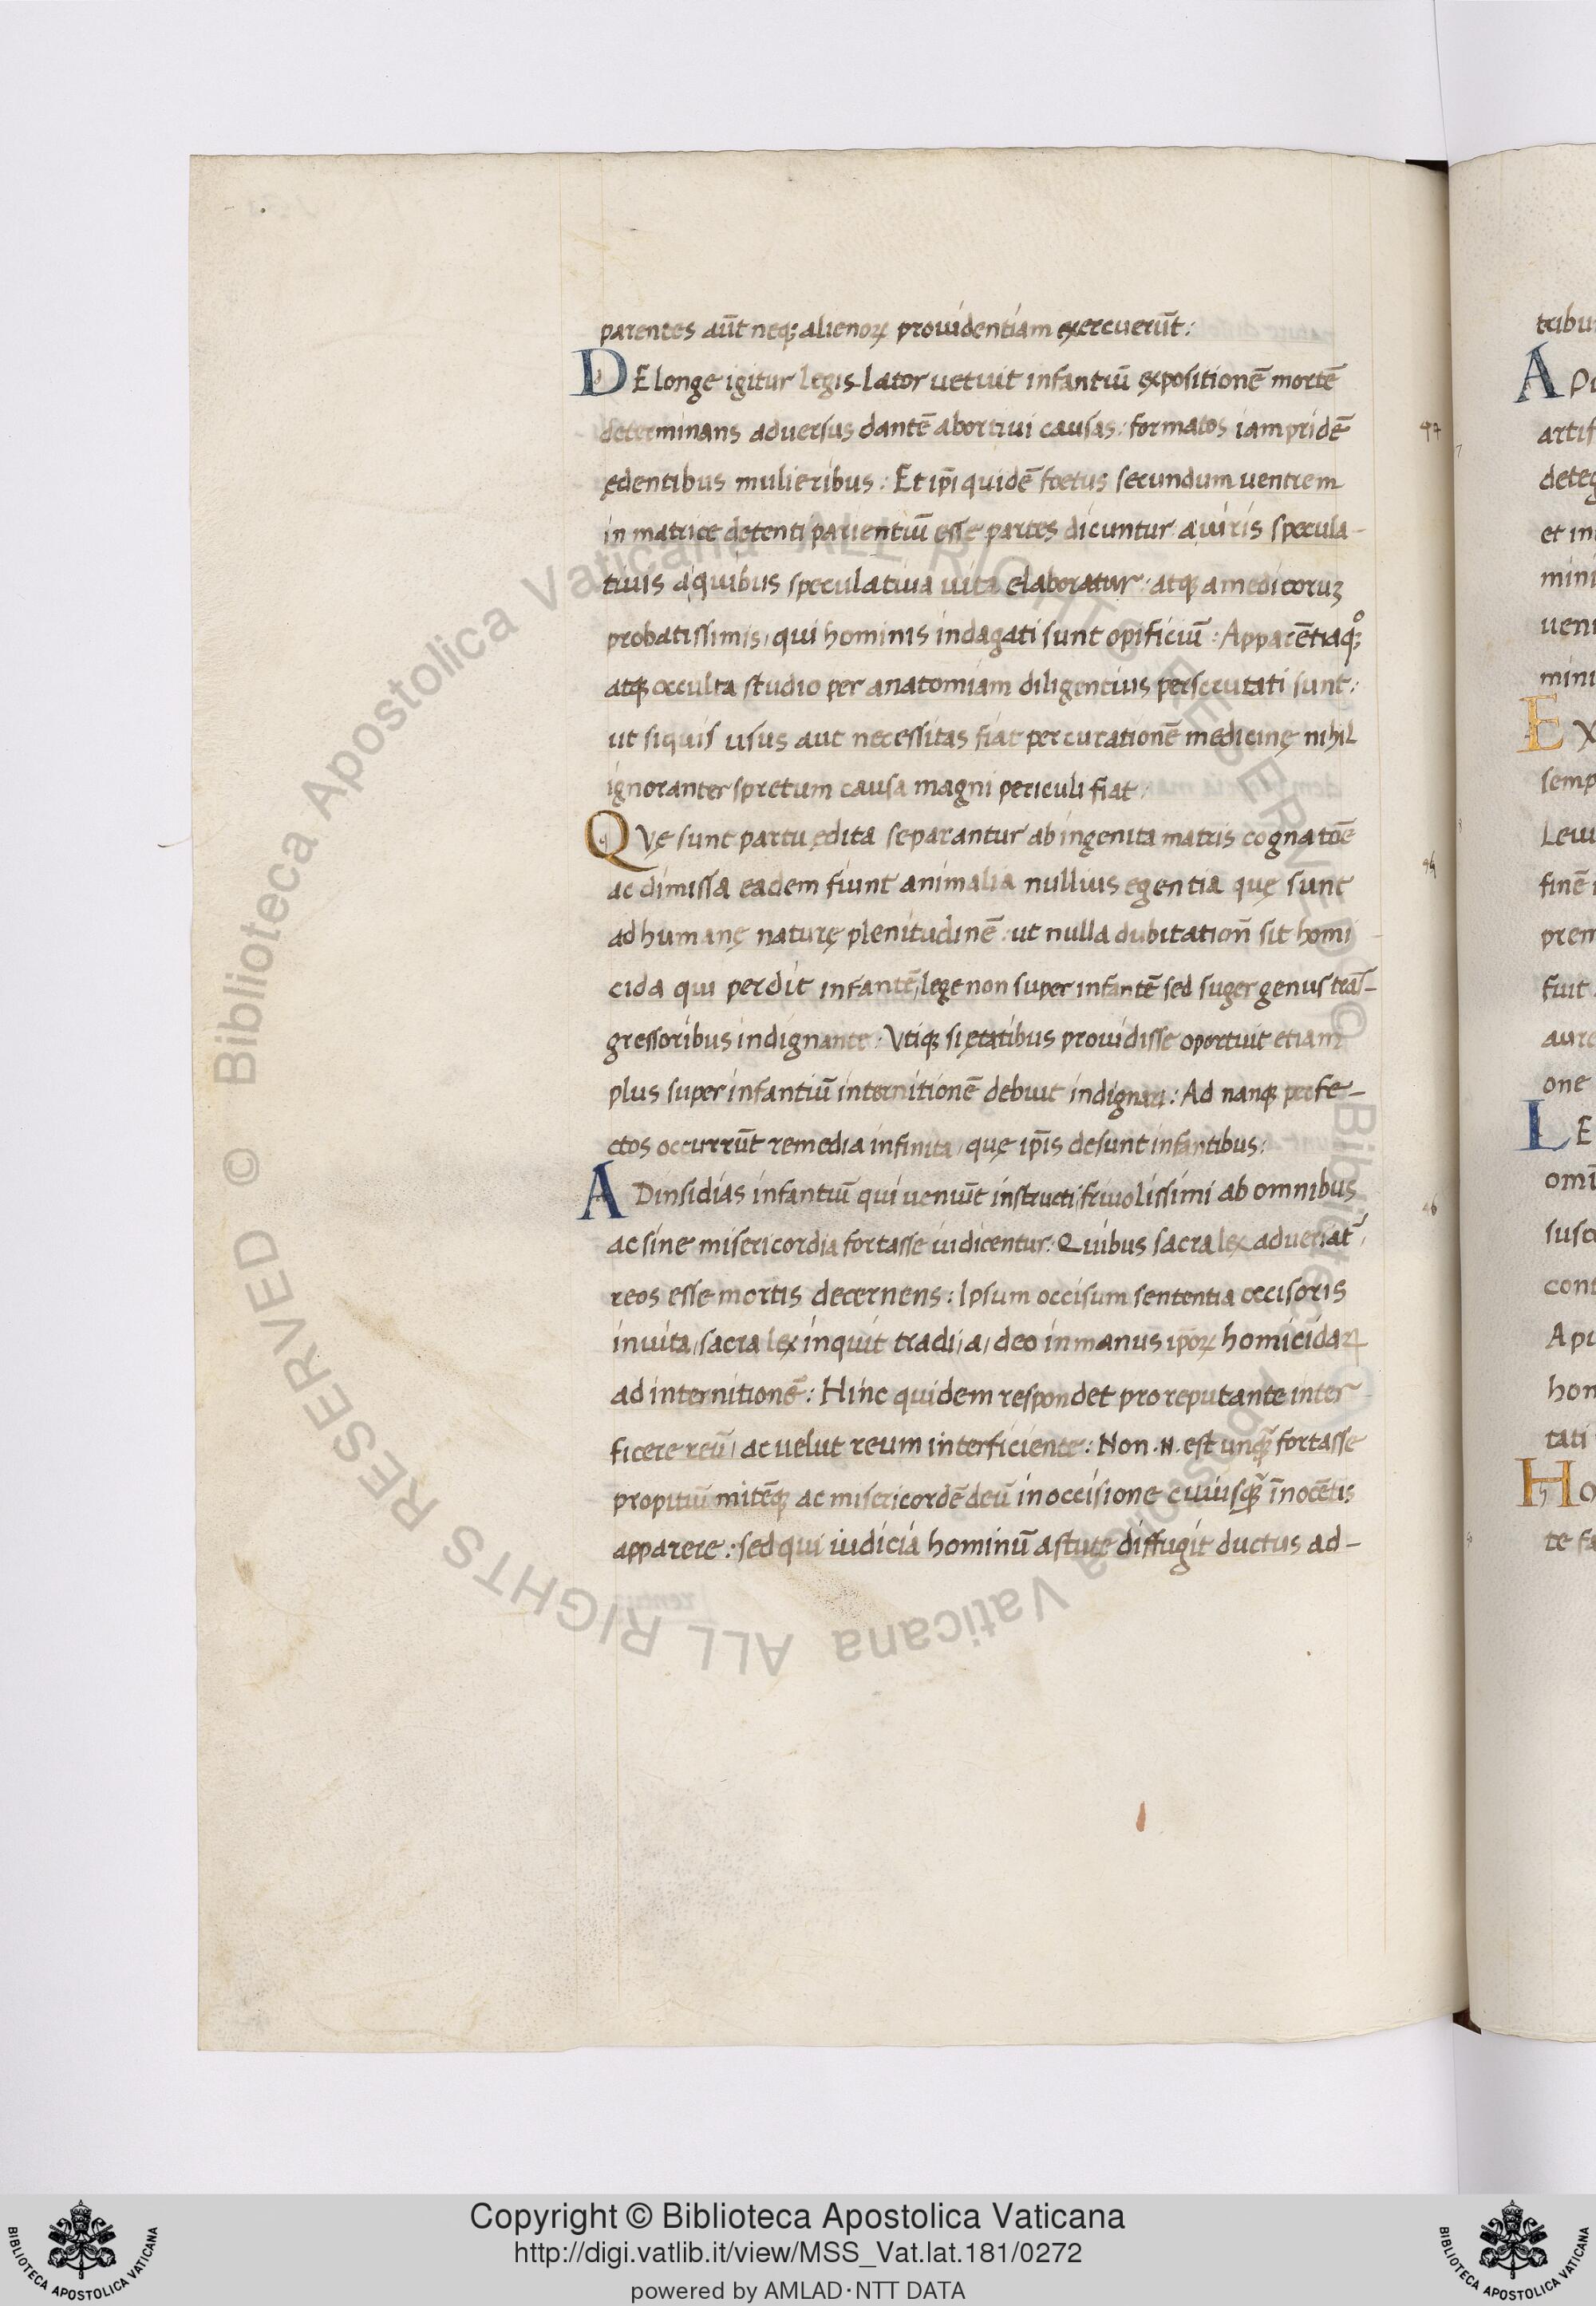 parentes aūt neq; alienoꝝ prouidentiam exercuerūt:
DE longe igitur legis lator uetuit infantiū expositionē mortē
determinans aduersus dantē abortiui causas: formatos iampridē
ędentibus mulieribus: Et ip̄i quidē foetus secundum uentrem
in matrice detenti parientiū esse partes dicuntur a uiris specula-
tiuis a quibus speculatiua uita elaboratur: atq; a medicoruꝫ
probatissimis, qui hominis indagati sunt opificiū: Apparētiaq;
atq; occulta studio per anatomiam diligentius perscrutati sunt:
ut siquis usus aut necessitas fiat per curationē medicinę nihil
ignoranter spretum causa magni periculi fiat:
QVę sunt partu ędita separantur ab ingenita matris cognatōe
ac dimissa eadem fiunt animalia nullius egentia quę sunt
ad humanę naturę plenitudinē: ut nulla dubitation̄ sit homi
cida qui perdit infantē, lege non super infantē sed super genus trās-
gressoribus indignante: Vtiq; si ętatibus prouidisse oportuit etiam
plus super infantiū internitionē debuit indignari: Ad nanq; perfe-
ctos occurrūt remedia infinita, quę ip̄is desunt infantibus:
AD insidias infantiū qui ueniūt instructi, friuolissimi ab omnibus
ac sine misericordia fortasse iudicentur: Quibus sacra lex aduersat͛,
reos esse mortis decernens: Ipsum occisum sententia occisoris
inuita, sacra lex inquit tradi, a, deo in manus ip̄oꝝ homicidaꝝ
ad internitionē: Hinc quidem respondet pro reputante inter
ficere reū, ac uelut reum interficiente: Non .N. est unq̄ fortasse
propitiū mitēq; ac misericordē deū in occisione cuiusq̄ īnocētis
apparere: sed qui iudicia hominū astute diffugit ductus ad-
tribu
A
artif
et in
mini
ueni
mini
E X
semp
Leui
finē
prem
fuit
one
L E
cont
hon
tati
H
te fa
Copyright © Biblioteca Apostolica Vaticana
http://digi.vatlib.it/view/MSS_Vat.lat.181/0272
powered by AMLAD·NTT DATA
BIBLIOTECA APOSTOLICA VATICANA
BIBLIOTECA APOSTOLICA VATICANA
© Biblioteca Apostolica Vaticana ALL RIGHTS RESERVED © Biblioteca Apostolica Vaticana ALL RIGHTS RESERVED